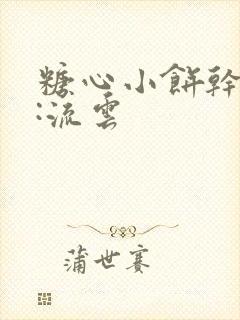 糖心小餅幹
:流雲
蒲世賽